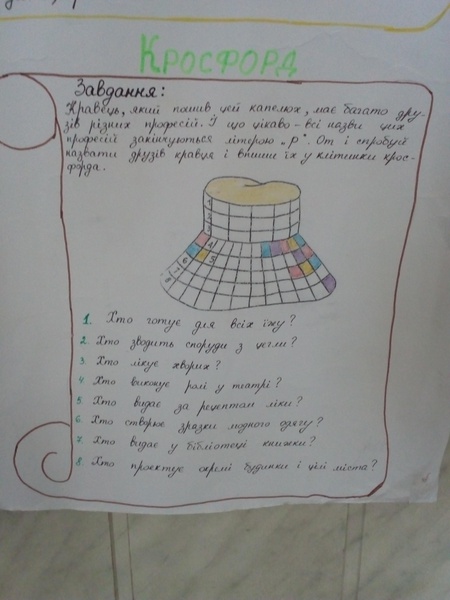 Кросфорд
Завдання:
Кравець, який пошив цей капелюх, має багато дру-
зів різних професій. І що цікаво - всі назви цих
професій закінчуються літерою „р". От і спробуй
назвати друзів кравця і впиши їх у клітинки крос-
форда.
1. Хто готує для всіх їжу?
2 Хто зводить споруди з цегли?
3 Хто лікує хворих?
4 Хто виконує ролі у театрі?
5 Хто видає за рецептом ліки?
6 Хто створює зразки модного одягу?
7. Хто видає у бібліотеці книжки?
8. Хто проектує окремі будинки і цілі міста?